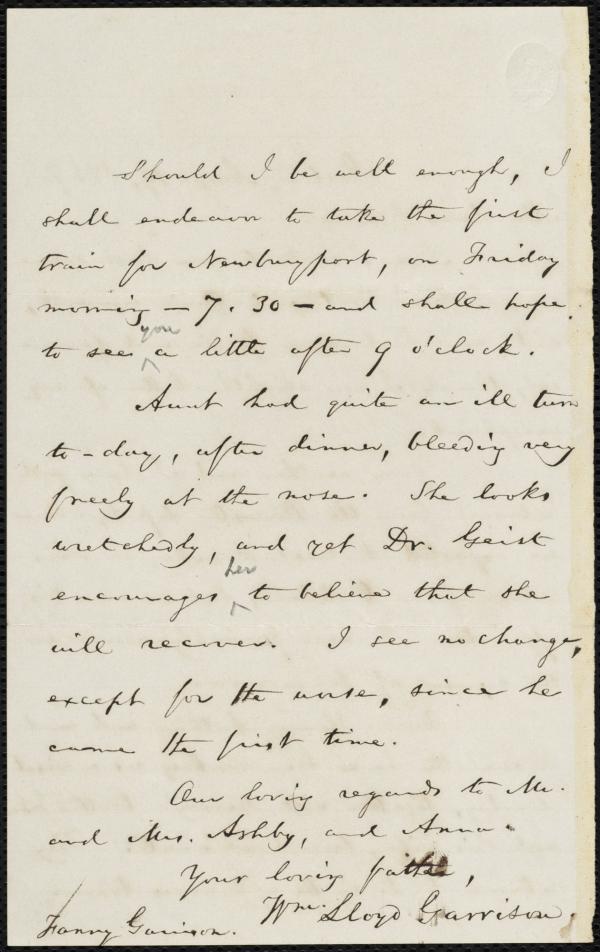 Should I be well enough, I
shall endeavor to take the first
train for Newburyport, on Friday
morning — 7.30 — and shall hope
to see you a little after 9 o'clock.
Aunt had quite an ill turn
to-day, after dinner, bleeding very
freely at the nose. She looks
wretchedly, and yet Dr. Geist
encourages her to believe that she
will recover. I see no change,
except for the worse, since he
came the first time.
Our loving regards to Mr.
and Mrs. Ashby, and Anna.
Your loving father,
Wm. Lloyd Garrison.
Fanny Garrison.